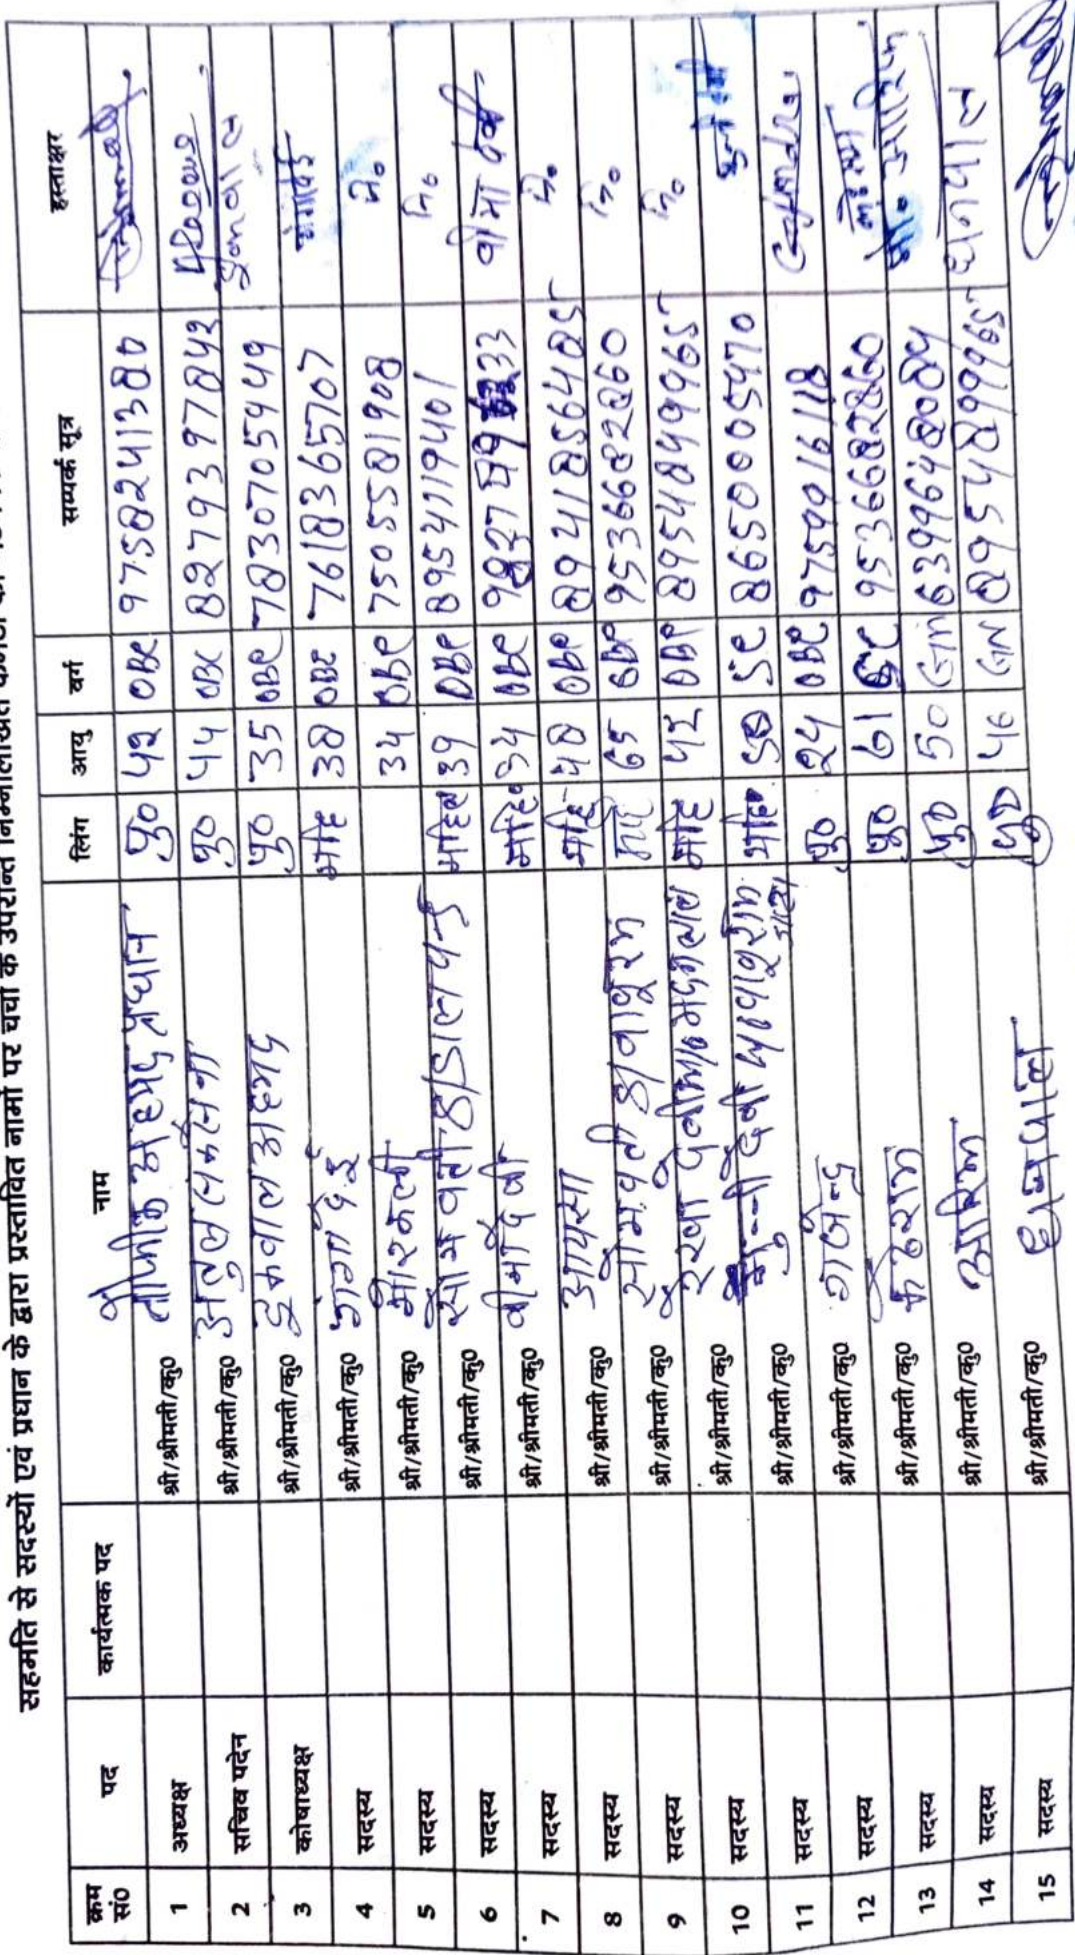 सहमति से सदस्यों एवं प्रधान के द्वारा प्रस्तावित नामों पर चर्चा के उपरान्त निम्नलिखित कमेटी का
क्रम सं0 पद कार्यत्मक पद नाम लिंग आयु वर्ग सम्पर्क सूत्र हस्ताक्षर
1 अध्यक्ष श्री/श्रीमती/कु0 तौफीक अहमद प्रधान पु0 42 OBC 9758241380
2 सचिव पदेन श्री/श्रीमती/कु0 अतुल सक्सेना पु0 44 OBC 8279397842
3 कोषाध्यक्ष श्री/श्रीमती/कु0 इकवाल अहमद पु0 35 OBC 7830705449 इकवाल
4 सदस्य श्री/श्रीमती/कु0 गंगा देई महि 38 OBC 7618365707 गंगादेई
5 सदस्य श्री/श्रीमती/कु0 34 OBC 7505581908 नि0
6 सदस्य श्री/श्रीमती/कु0 सोमवती महिला 39 OBC 8954119401 नि0
7 सदस्य श्री/श्रीमती/कु0 वीमा देवी महि0 34 OBC वीमा देवी
8 सदस्य श्री/श्रीमती/कु0 आयसा महि 48 OBC 8941856485 नि0
9 सदस्य श्री/श्रीमती/कु0 सोमवती महि 65 OBC 9536682260 नि0
10 सदस्य श्री/श्रीमती/कु0 रेखा देवी महि 42 OBC 8954849965 नि0
11 सदस्य श्री/श्रीमती/कु0 मुन्नी देवी महि0 50 SC 8650005470
12 सदस्य श्री/श्रीमती/कु0 गजेन्द्र पु0 24 OBC 9759916118
13 सदस्य श्री/श्रीमती/कु0 केहराज पु0 61 SC 9536682860
14 सदस्य श्री/श्रीमती/कु0 आरिफ पु0 50 GN 6399648084
15 सदस्य श्री/श्रीमती/कु0 धर्मपाल पु0 46 GN 8954899965